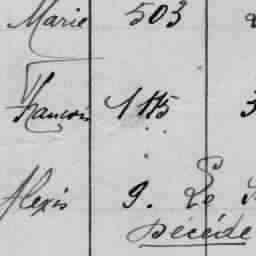 Marie 503
François 1115 3
Alexis 9. Le
Décéde